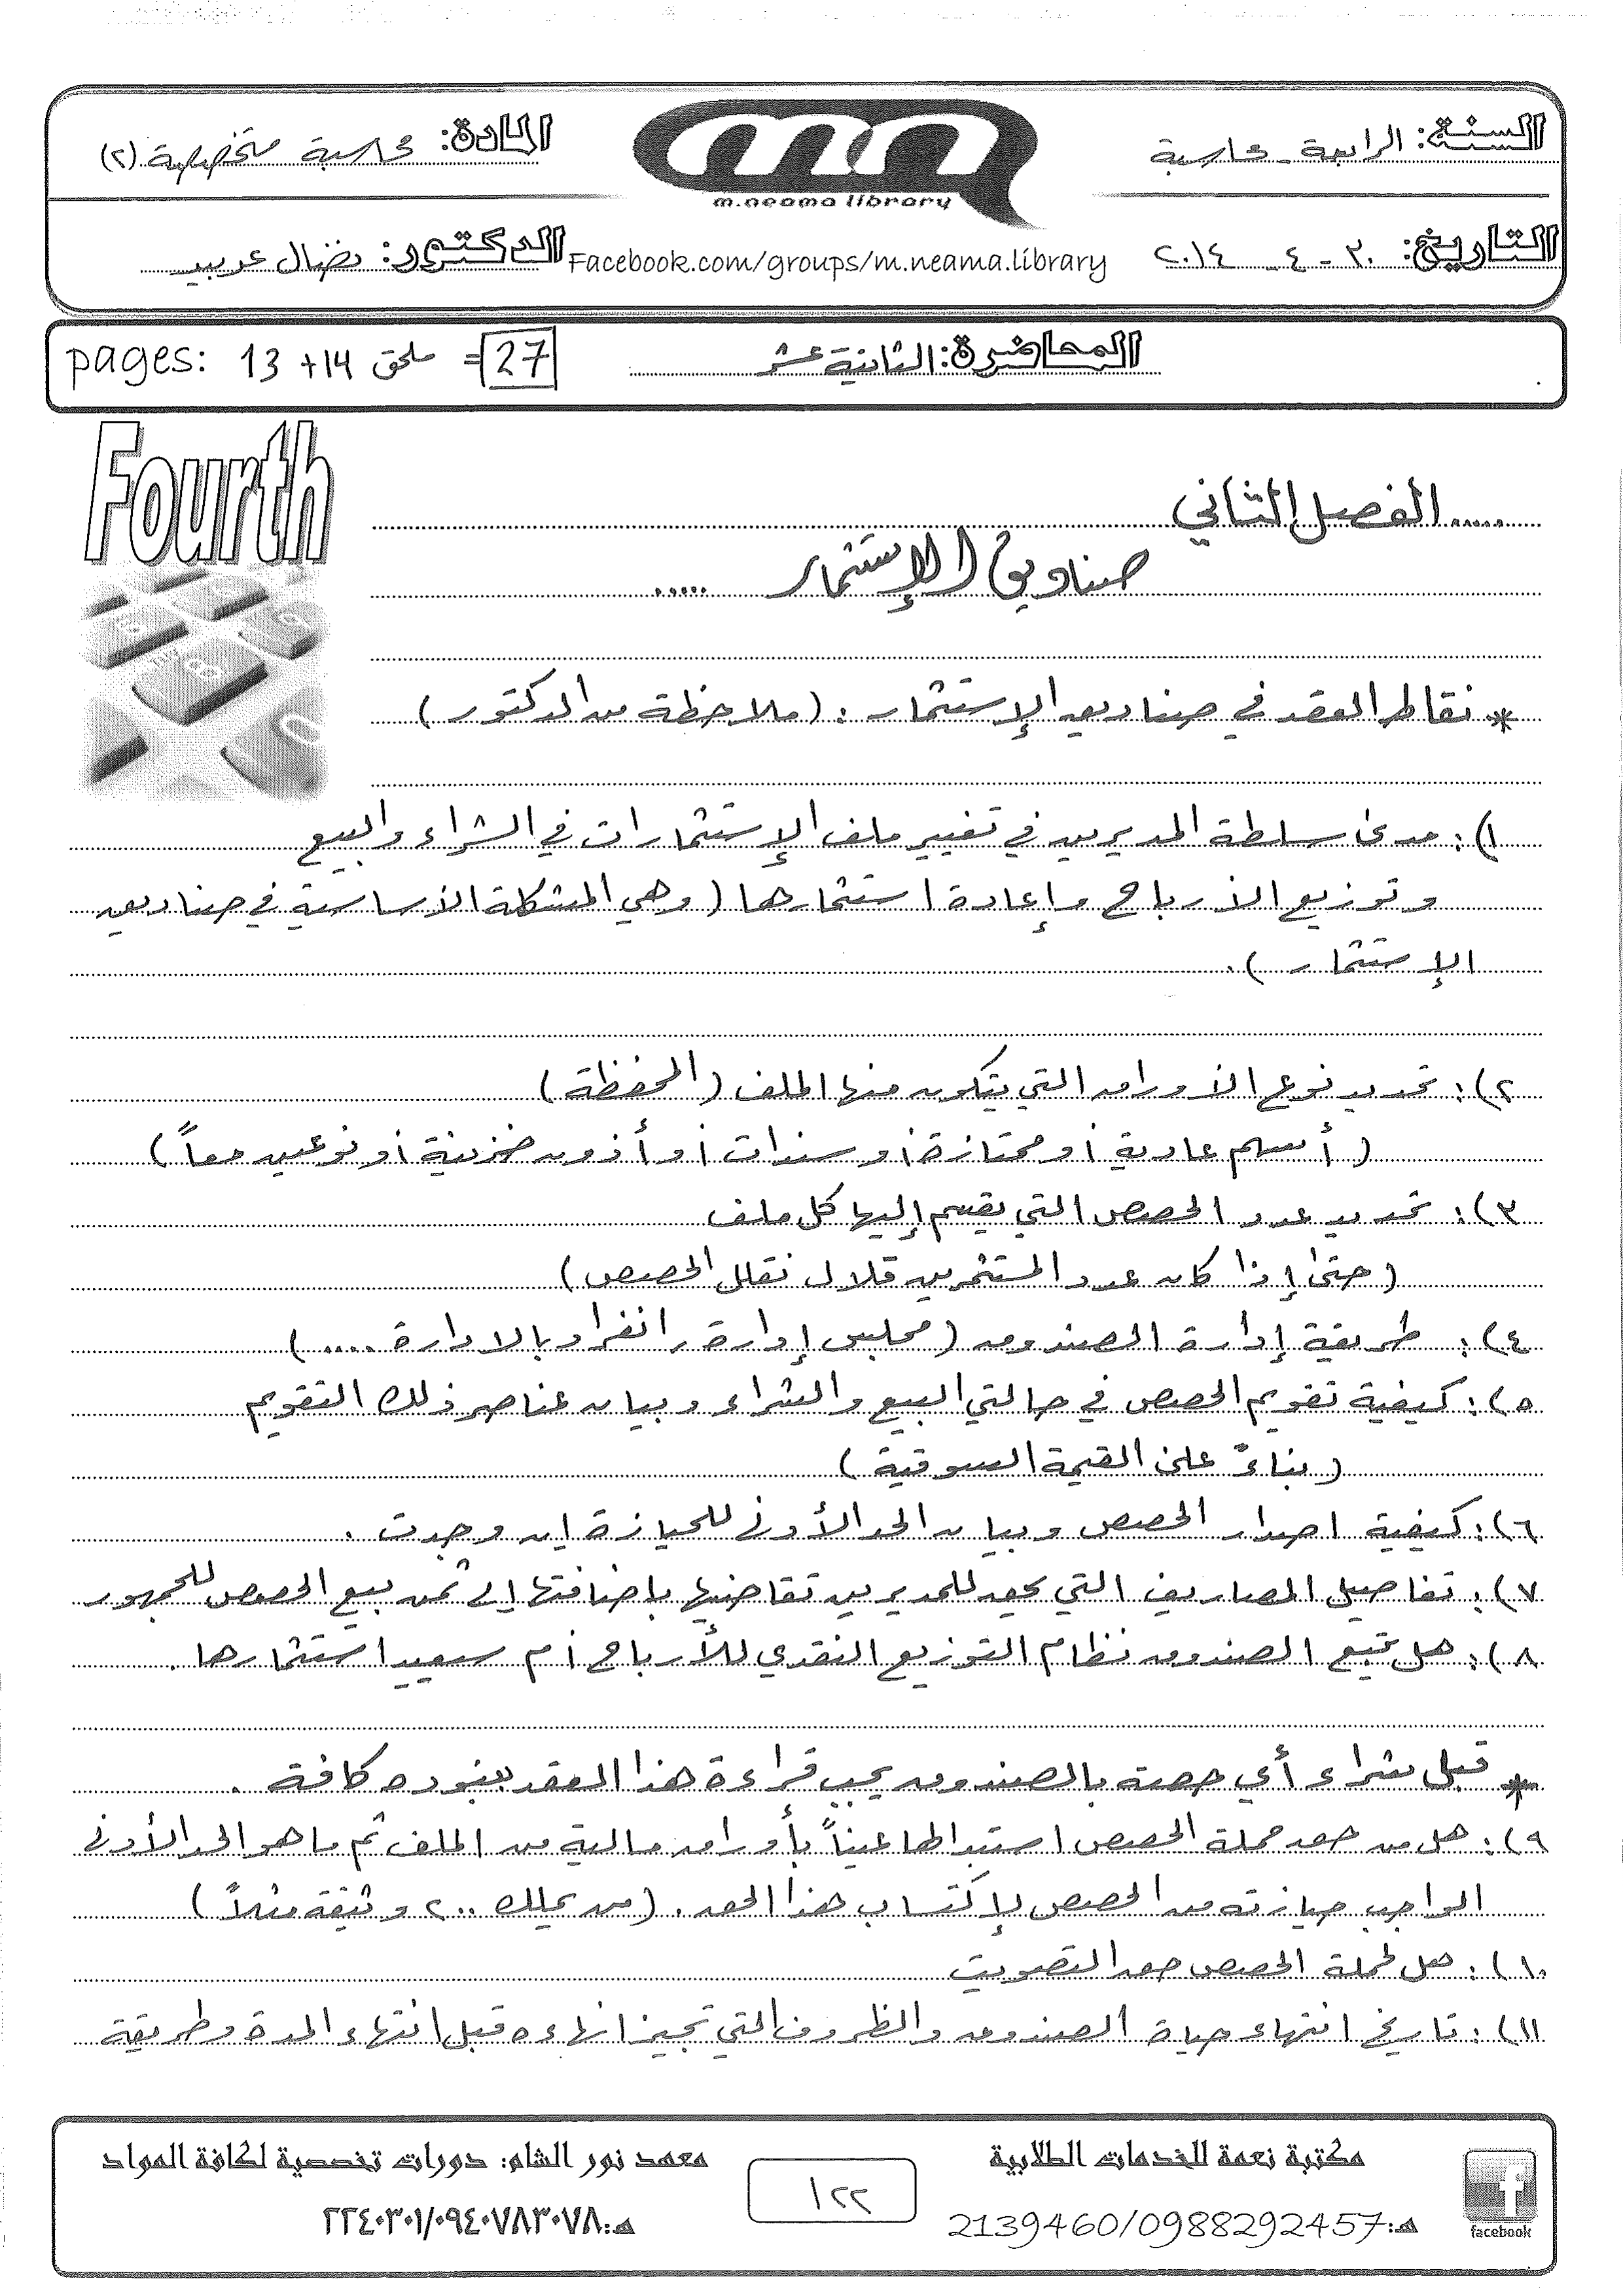 السنة: الرابعة - محاسبة
المادة: محاسبة متخصصة (٢)
m.neama library
التاريخ: ٣٠ - ٤ - ٢٠١٤
Facebook.com/groups/m.neama.library
الدكتور: نضال عربيد
المحاضرة: الثانية عشر
pages: 13 + 14 ملحق = 27
Fourth
..... الفصل الثاني
صناديق الإستثمار .....
* نقاط العقد في صناديق الإستثمار : (ملاحظة من الدكتور)
١): مدى سلطة المديرين في تغيير ملف الإستثمارات في الشراء والبيع
وتوزيع الأرباح وإعادة استثمارها (وهي المشكلة الأساسية في صناديق
الإستثمار).
٢): تحديد نوع الأوراق التي يتكون منها الملف (المحفظة)
(أسهم عادية أو ممتازة أو سندات أو أذون خزينة أو نوعين معاً)
٣): تحديد عدد الحصص التي يقسم إليها كل ملف
(حتى إذا كان عدد المستثمرين قلال نقلل الحصص)
٤): طريقة إدارة الصندوق (مجلس إدارة، انفراد بالادارة ....)
٥): كيفية تقويم الحصص في حالتي البيع والشراء وبيان عناصر ذلك التقويم
(بناءً على القيمة السوقية)
٦): كيفية اصدار الحصص وبيان الحد الأدنى للحيازة ان وجدت .
٧): تفاصيل المصاريف التي يحق للمديرين تقاضيها باضافتها إلى ثمن بيع الحصص للجمهور
٨): هل يتبع الصندوق نظام التوزيع النقدي للأرباح أم سيعيد استثمارها .
* قبل شراء أي حصة بالصندوق يجب قراءة هذا العقد ببنوده كافة .
٩): هل من حق حملة الحصص استبدالها عيناً بأوراق مالية من الملف ثم ما هو الحد الأدنى
الواجب حيازته من الحصص لإكتساب هذا الحق . (من يملك ٢٠٠ وثيقة مثلاً)
١٠): هل لحملة الحصص حق التصويت
١١): تاريخ انتهاء حياة الصندوق والظروف التي تجيز انهاءه قبل انتهاء المدة وطريقة
مكتبة نعمة للخدمات الطلابية
هـ: 2139460/0988292457
facebook
١٢٢
معهد نور الشام: دورات تخصصية لكافة المواد
هـ: ٢٢٤٠٣٠١/٠٩٤٠٧٨٣٠٧٨